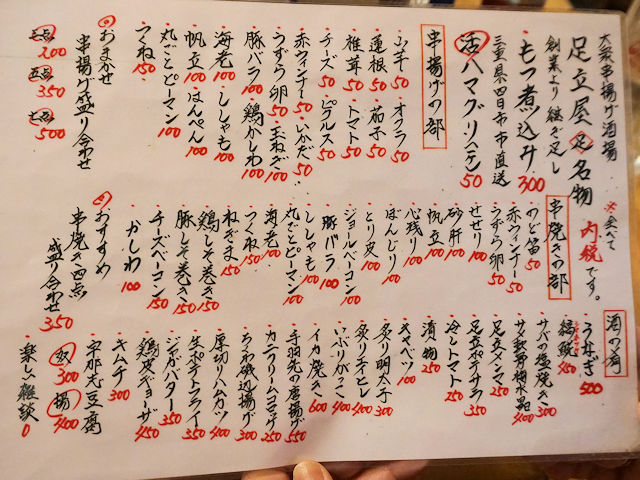 大衆串揚げ酒場
足立屋 足 名物
創業より継ぎ足し
・もつ煮込み 300
三重県四日市市直送
活ハマグリ 1ケ 50
※全て内税です。
串揚げの部
・山芋 50
・オクラ 50
・蓮根 50
・茄子 50
・椎茸 50
・トマト 50
・チーズ 50
・ピクルス 50
・赤ウィンナー 50
・いかだ 50
・うずら卵 50
・玉ねぎ 100
・豚バラ 100
・鶏かしわ 100
・海老 100
・ししゃも 100
・帆立 100
・はんぺん 100
・丸ごとピーマン 100
・つくね 150
おまかせ
串揚げ盛り合わせ
三点 200
五点 350
七点 500
串焼きの部
・のど笛 50
・赤ウィンナー 50
・うずら卵 50
・せせり 100
・砂肝 100
・帆立 100
・心残り 100
・ぼんじり 100
・とり皮 100
・ジョルベーコン 100
・豚バラ 100
・ししゃも 100
・丸ごとピーマン 100
・海老 100
・つくね 150
・ねぎま 150
・鶏しそ巻き 150
・豚しそ巻き 150
・チーズベーコン 150
・かしわ 100
おすすめ
串焼き四点
盛り合わせ 350
酒の肴
・うなぎ 500
・塩鯨 450
・サバの塩焼き 300
・サメ軟骨梅水晶 400
・足立メンマ 250
・足立ポテサラ 250
・冷しトマト 250
・漬物 250
・キャベツ 100
・炙り明太子 300
・炙りエイヒレ 400
・いぶりがっこ 400
・イカ焼き 600
・手羽先の唐揚げ 550
・カニクリームコロッケ 250
・ちくわ磯辺揚げ 300
・厚切りハムカツ 400
・生ポテトフライ 350
・ジャガバター 350
・鶏皮ギョーザ 450
・キムチ 300
・宇那志豆腐
奴 300
揚 400
・楽しい雑談 0